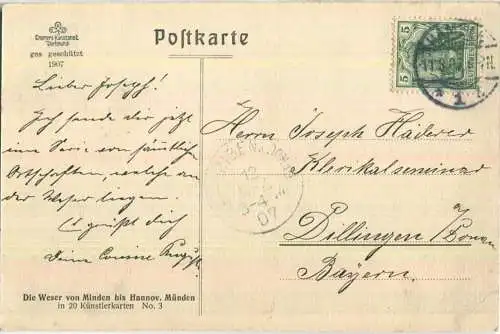 Cramers Kunstanst.
Dortmund
ges geschützt
1907
Postkarte
Lieber Joseph!
Ich sende dir jetzt
eine Serie von sämtlichen
Ortschaften, welche an
der Weser liegen.
Es grüßt dich
Deine Cousine
Herrn Joseph Häderer
Klerikalseminar
Dillingen a/Donau
Bayern.
5 5
12
07
* 1
Die Weser von Minden bis Hannov. Münden
in 20 Künstlerkarten No. 3